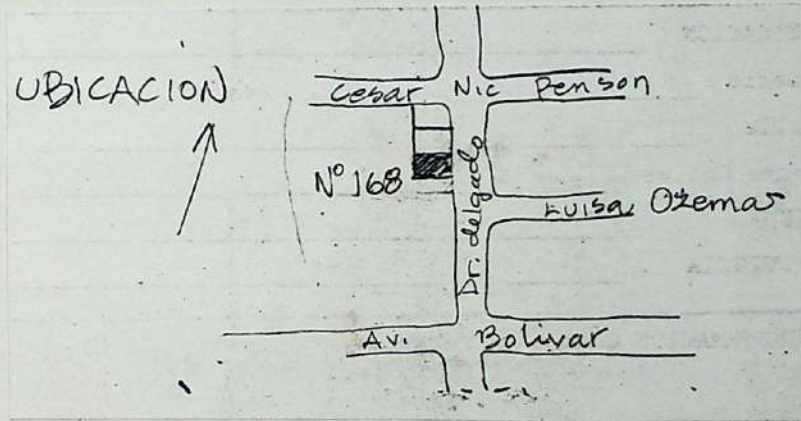 UBICACION
Cesar Nic Penson
Nº 168
Dr. delgado
Luisa Ozemas
Av. Bolivar